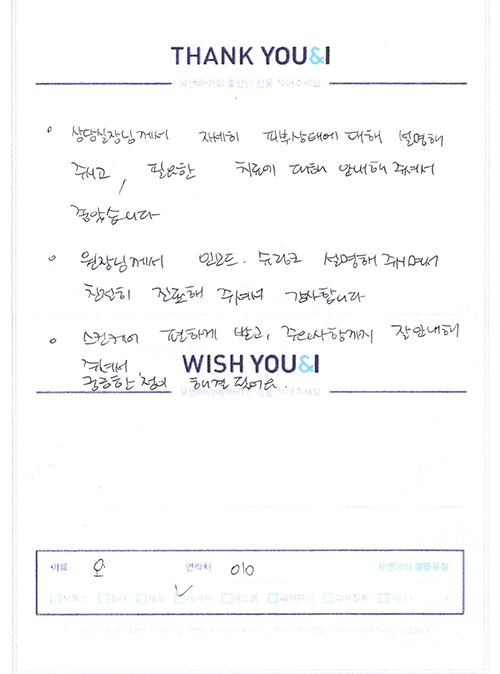 THANK YOU&I
유앤아이의 좋았던 점을 적어주세요
상담실장님께서 자세히 피부상태에 대해 설명해
주시고, 필요한 치료에 대해 안내해 주셔서
좋았습니다
원장님께서 인모드. 슈링크 설명해 주시며
친절히 진료해 주셔서 감사합니다
스킨케어 편하게 받고, 주의사항까지 잘 안내해
주셔서
WISH YOU&I
궁금한 점이 해결 됐어요.
유앤아이에 바라는 점을 적어주세요
이름 오 연락처 010 유앤아이 영등포점
보톡스 필러 제모 레이저 여드름 피부관리 피부질환 기타 ( )